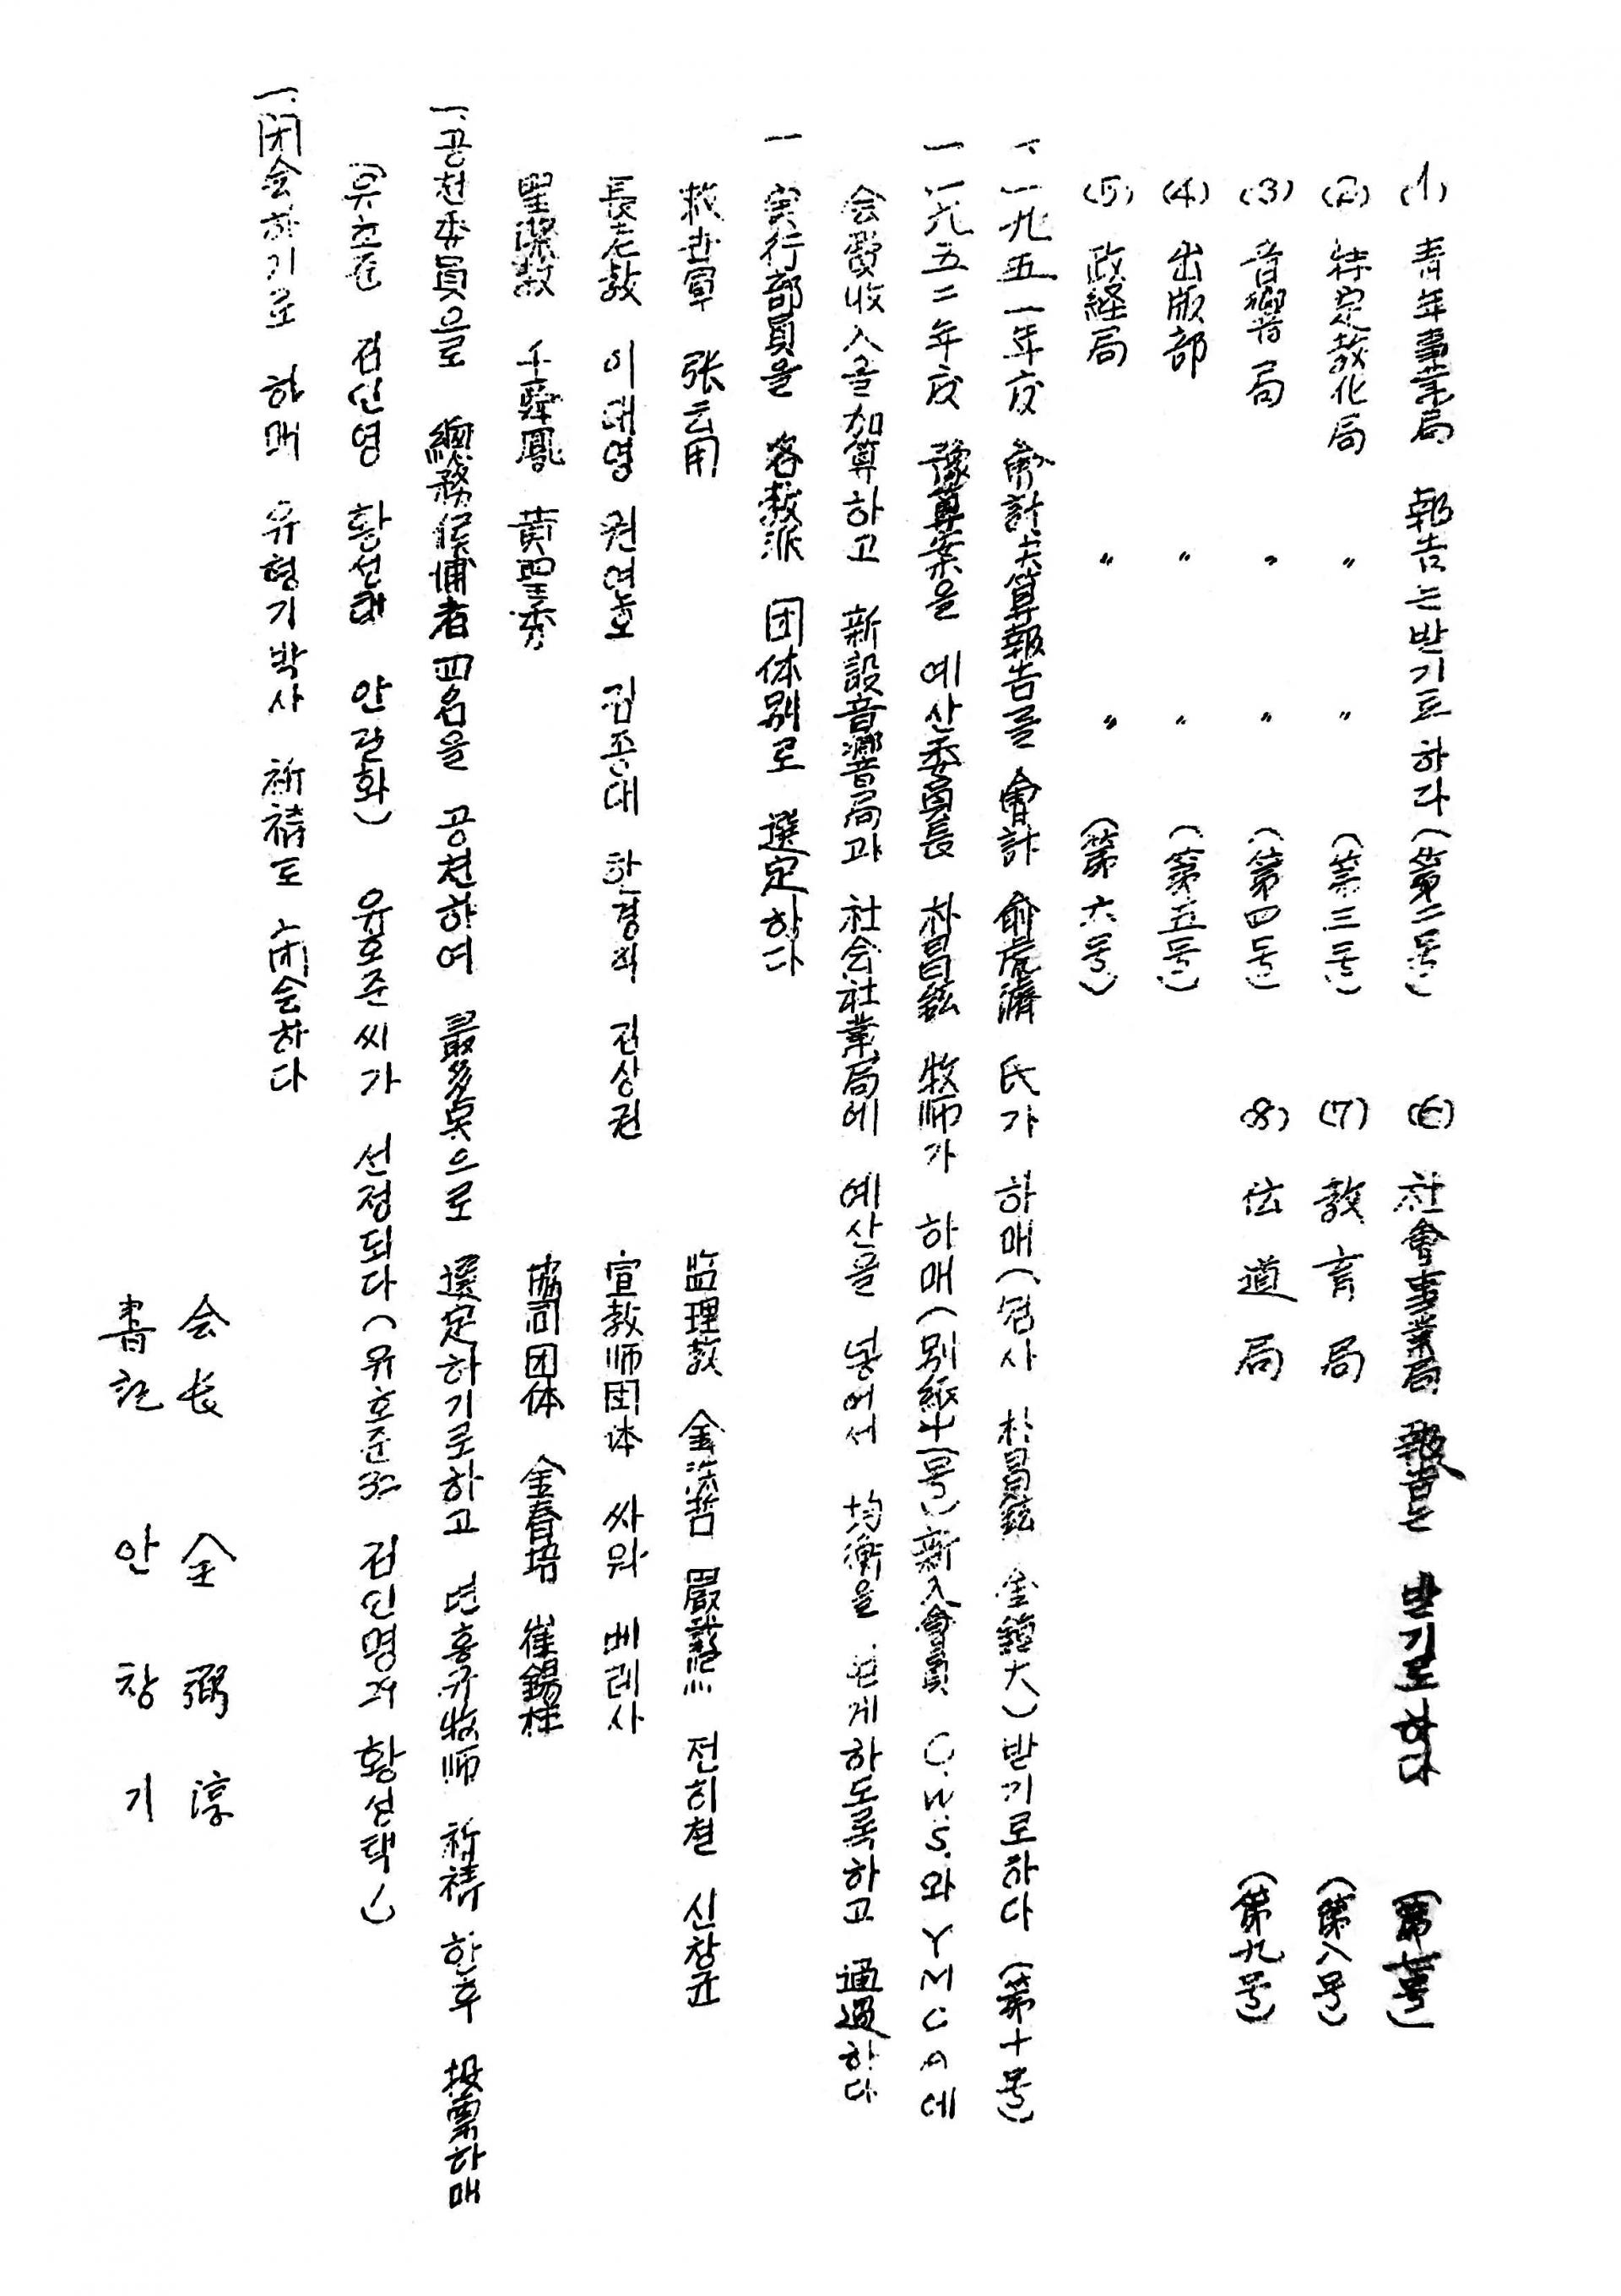 (1) 青年事業局 報告는 받기로 하다 (第二号)
(2) 特定教化局 〃 〃 (第三号)
(3) 音響局 〃 〃 (第四号)
(4) 出版部 〃 〃 (第五号)
(5) 政経局 〃 〃 (第六号)
(6) 社會事業局 報告는 받기로 하다 (第七号)
(7) 教育局 (第八号)
(8) 伝道局 (第九号)
一、一九五一年度 會計決算報告를 會計 兪虎濟 氏가 하매 (검사 朴昌鉉 金鎭大) 받기로하다 (第十号)
一、一九五二年度 豫算案을 예산委員長 朴昌鉉 牧师가 하매 (別紙十一号) 新入會員 C.W.S.와 YMCA에
会費収入을 加算하고 新設音響局과 社会社業局에 예산을 넣어서 均衡을 얻게하도록하고 通過하다
一 実行部員을 各教派 団体別로 選定하다
救世軍 张云用 监理教 金 哲 嚴 전히철 신창균
長老教 이대영 권연호 김종대 한경직 전상권 宣教师団体 싸워 베레사
聖潔教 千舜鳳 黄聖秀 協同団体 金春培 崔錫柱
一、공천委員으로 總務候補者 四名을 공천하여 最多点으로 選定하기로하고 변홍규牧师 祈祷 한후 投票하매
(유호준 김인영 황선택 안길화) 유호준씨가 선정되다 (유호준32 김인영24 황성택1)
一、闭会하기로 하매 유형기박사 祈祷로 闭会하다
会长 全弼淳
書記 안창기